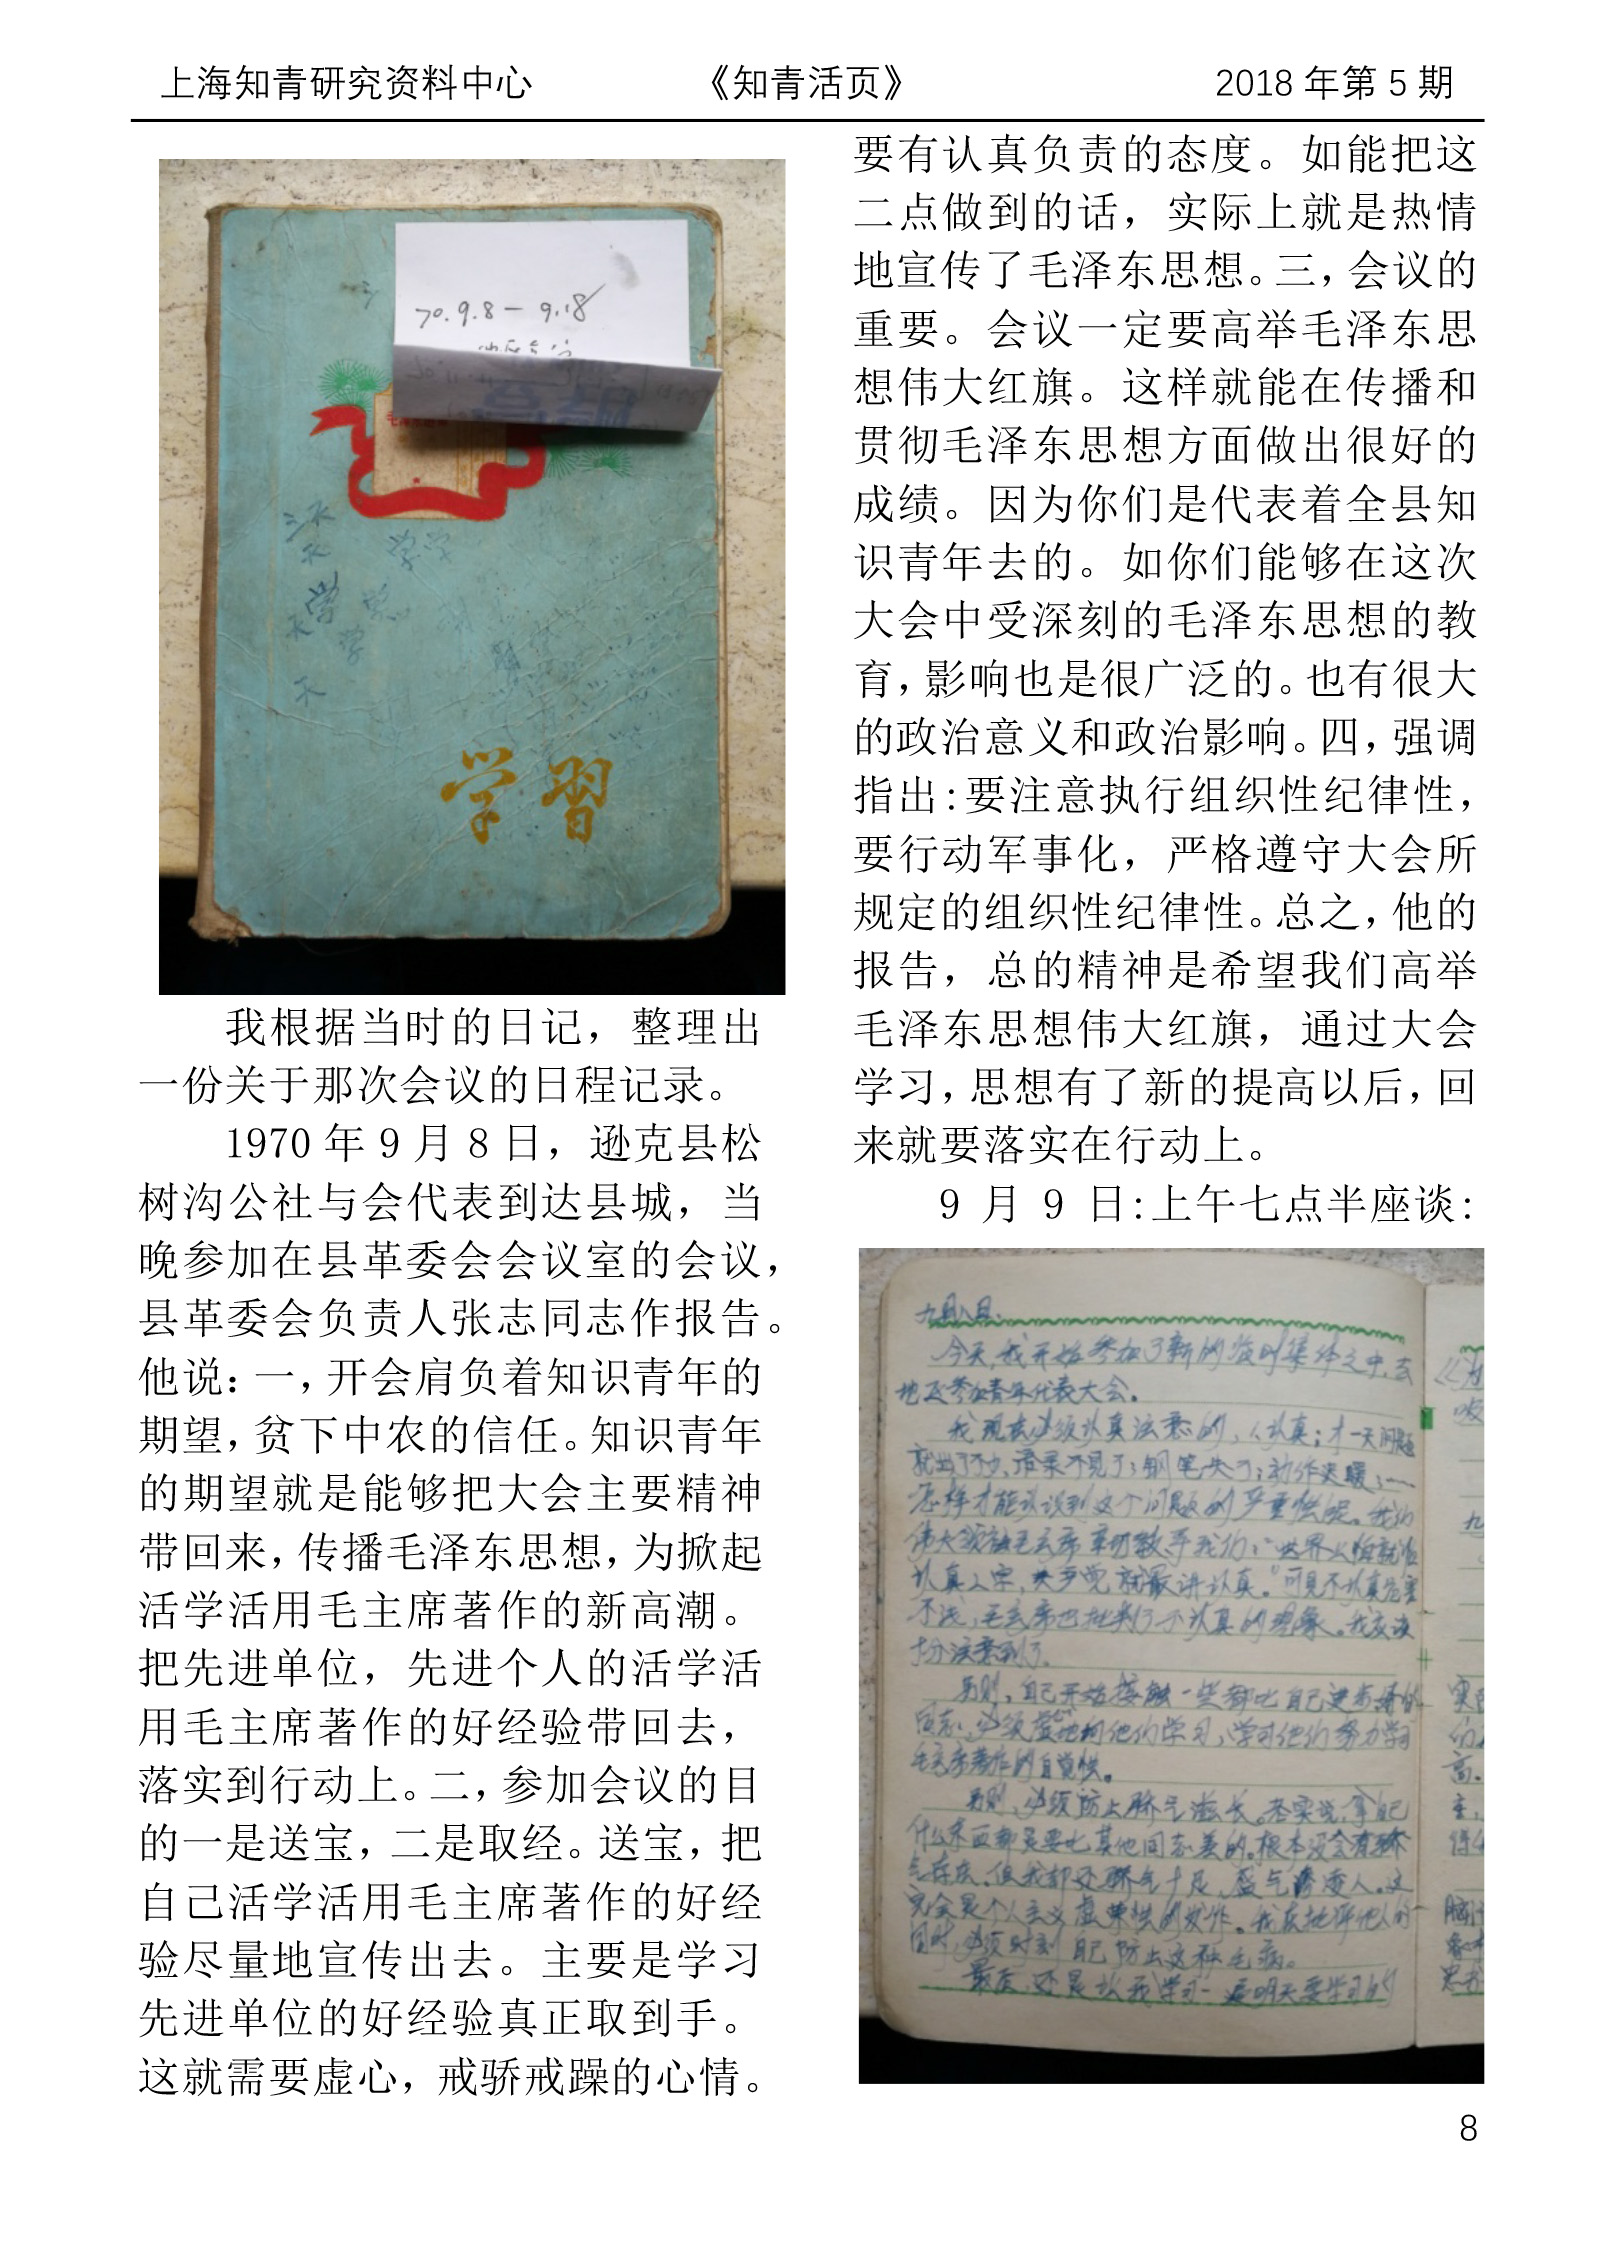 上海知青研究资料中心 《知青活页》 2018 年第 5 期
70.9.8 — 9.18
学習
我根据当时的日记，整理出
一份关于那次会议的日程记录。
1970 年 9 月 8 日，逊克县松
树沟公社与会代表到达县城，当
晚参加在县革委会会议室的会议，
县革委会负责人张志同志作报告。
他说：一，开会肩负着知识青年的
期望，贫下中农的信任。知识青年
的期望就是能够把大会主要精神
带回来，传播毛泽东思想，为掀起
活学活用毛主席著作的新高潮。
把先进单位，先进个人的活学活
用毛主席著作的好经验带回去，
落实到行动上。二，参加会议的目
的一是送宝，二是取经。送宝，把
自己活学活用毛主席著作的好经
验尽量地宣传出去。主要是学习
先进单位的好经验真正取到手。
这就需要虚心，戒骄戒躁的心情。
要有认真负责的态度。如能把这
二点做到的话，实际上就是热情
地宣传了毛泽东思想。三，会议的
重要。会议一定要高举毛泽东思
想伟大红旗。这样就能在传播和
贯彻毛泽东思想方面做出很好的
成绩。因为你们是代表着全县知
识青年去的。如你们能够在这次
大会中受深刻的毛泽东思想的教
育，影响也是很广泛的。也有很大
的政治意义和政治影响。四，强调
指出：要注意执行组织性纪律性，
要行动军事化，严格遵守大会所
规定的组织性纪律性。总之，他的
报告，总的精神是希望我们高举
毛泽东思想伟大红旗，通过大会
学习，思想有了新的提高以后，回
来就要落实在行动上。
9 月 9 日：上午七点半座谈：
九月八日.
今天，我开始参加了新的临时集体之中，去
地区参加青年代表大会。
我现在必须认真注意的，认真；才一天问题
怎样才能认识到这个问题的严重性呢。我们
伟大领袖毛主席亲切教导我们：“世界上怕就怕
认真二字，共产党就最讲认真。”可见不认真危害
不浅，毛主席也批判了不认真的现象。我应该
十分注意到了.
另则，自己开始接触一些都比自己进步好的
同志，必须虚心地向他们学习，学习他们努力学习
毛主席著作的自觉性。
另则，必须防止骄气滋长。老实说，拿自己
什么东西都是要比其他同志差的。根本没会有骄
完全是个人主义虚荣性的发作。我在批评他人的
同时，必须时刻自己防止这种毛病。
8